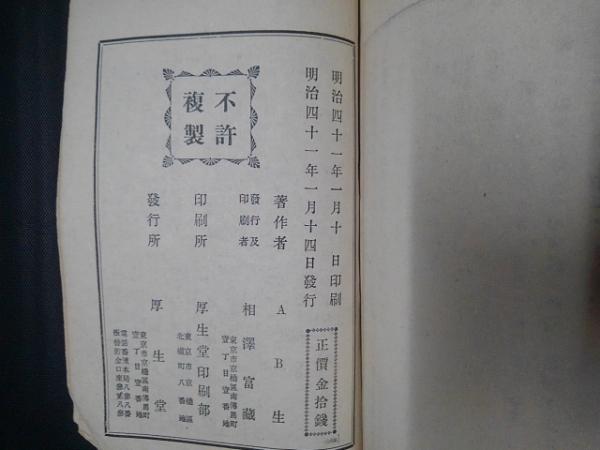 明治四十一年一月十日印刷
明治四十一年一月十四日發行
正價金拾錢
不許
複製
著作者 AB生
發行及
印刷者 相澤富藏
東京市京橋區南傳馬町
壹丁目壹番地
印刷所 厚生堂印刷部
東京市京橋區
北槇町八番地
發行所 厚生堂
東京市京橋區南傳馬町
壹丁目壹番地